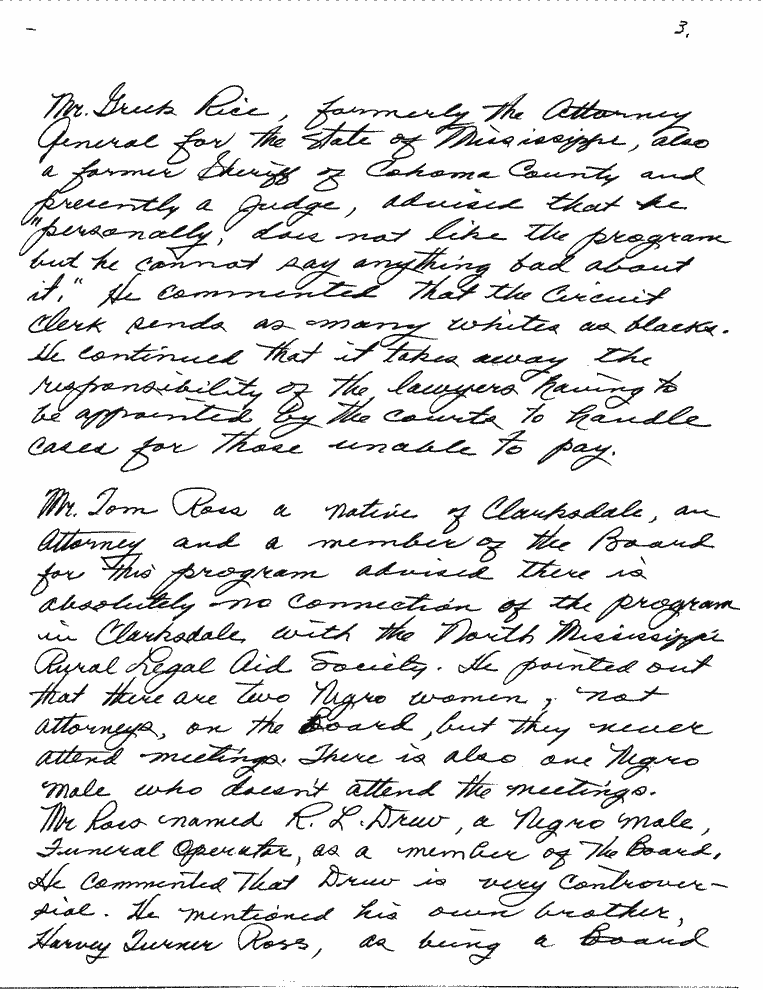 3.
Mr. Greek Rice, formerly the Attorney
General for the State of Mississippi, also
a former Sheriff of Cohoma County and
presently a Judge, advised that he
"personally, does not like the program
but he cannot say anything bad about
it." He commented that the Circuit
Clerk sends as many whites as blacks.
He continued that it takes away the
responsibility of the lawyers having to
be appointed by the courts to handle
cases for those unable to pay.
Mr. Tom Ross a native of Clarksdale, an
Attorney and a member of the Board
for this program advised there is
absolutely no connection of the program
in Clarksdale, with the North Mississippi
Rural Legal Aid Society. He pointed out
that there are two Negro women, not
attorneys, on the Board, but they never
attend meetings. There is also one Negro
male who doesn't attend the meetings.
Mr Ross named R. L. Drew, a Negro male,
Funeral Operator, as a member of the Board.
He commented that Drew is very controver-
sial. He mentioned his own brother,
Harvey Turner Ross, as being a Board